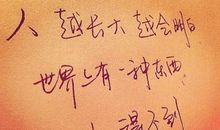 人越长大越会明白
世界上有一种东西
得不到